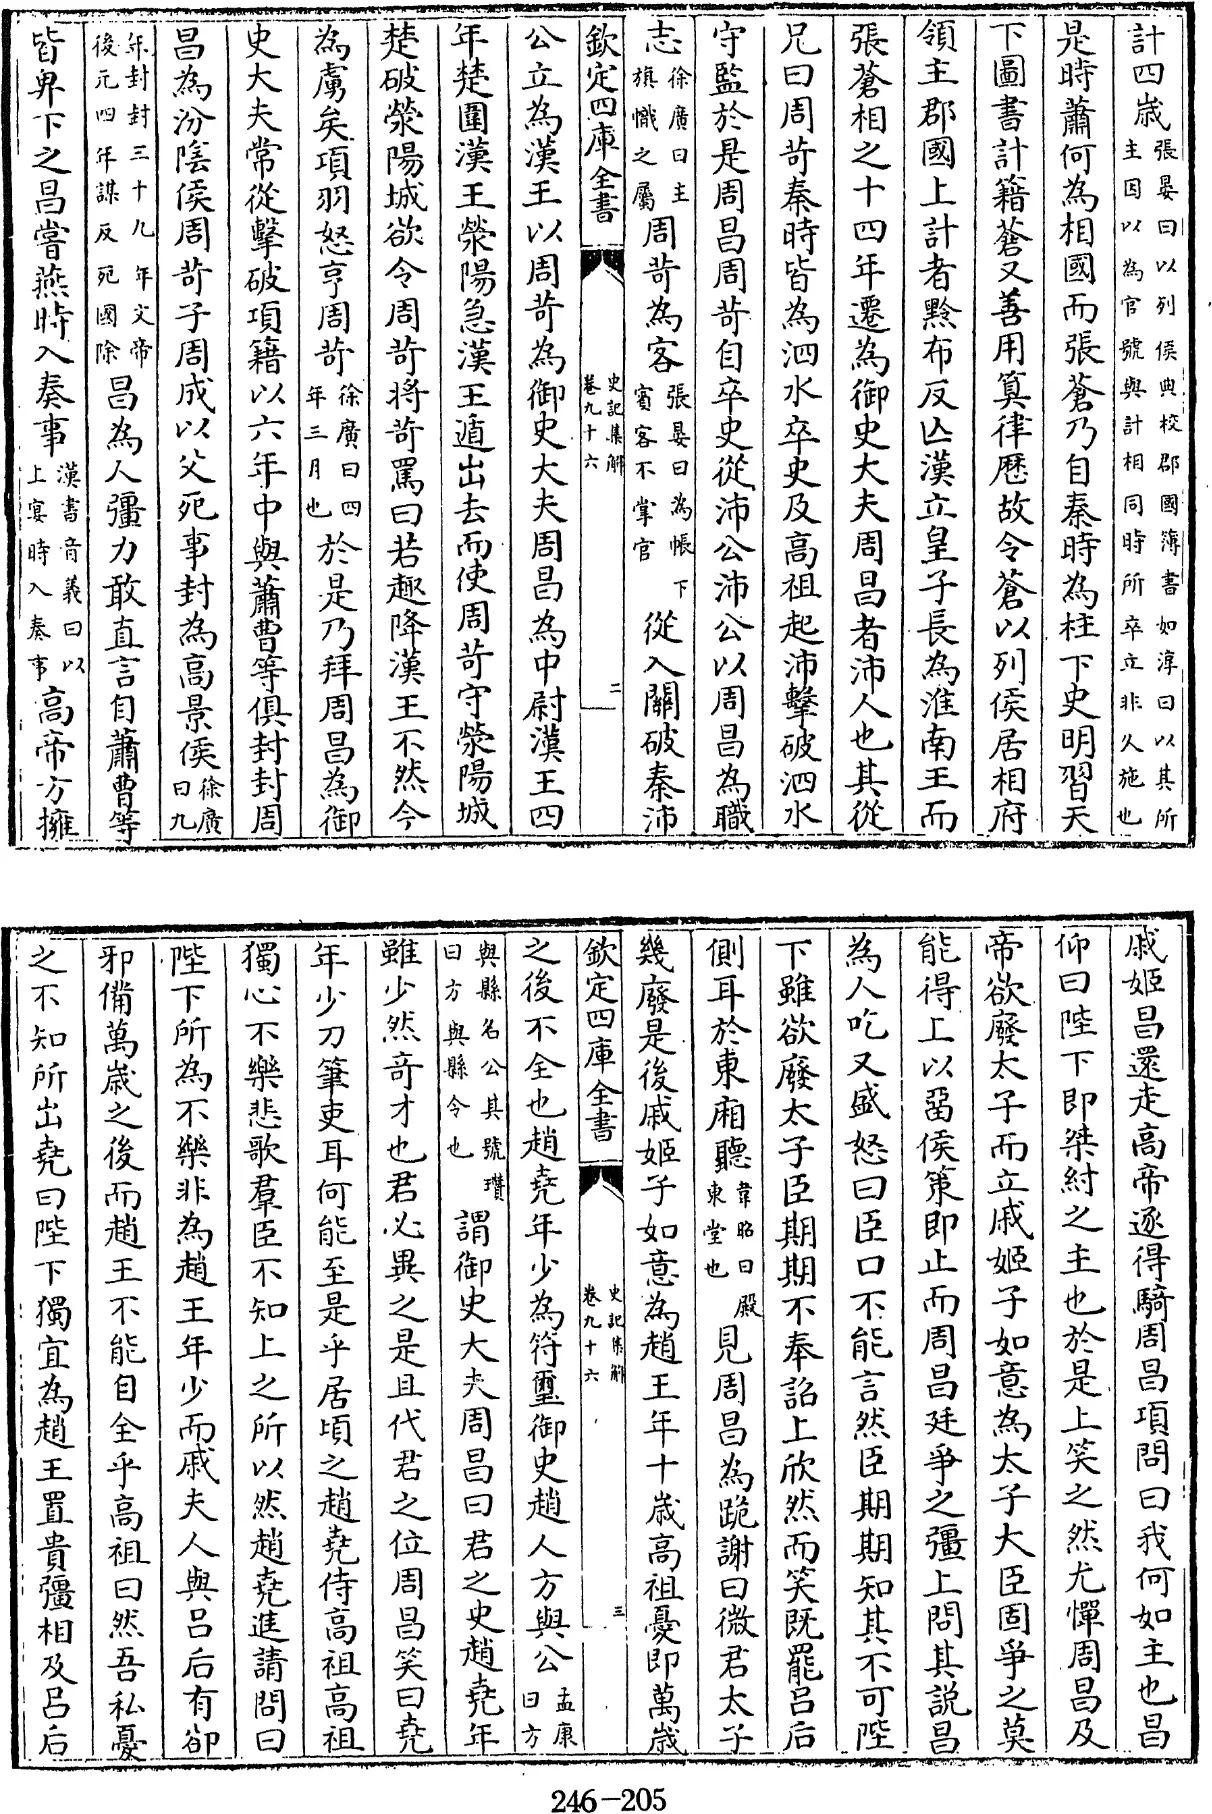 計四歳張晏曰以列侯典校郡國簿書如淳曰以其所主因以為官號與計相同時所卒立非久施也
是時蕭何為相國而張蒼乃自秦時為柱下史明習天
下圖書計籍蒼又善用算律歷故令蒼以列侯居相府
領主郡國上計者黥布反亾漢立皇子長為淮南王而
張蒼相之十四年遷為御史大夫周昌者沛人也其從
兄曰周苛秦時皆為泗水卒史及高祖起沛擊破泗水
守監於是周昌周苛自卒史從沛公沛公以周昌為職
志徐廣曰主旗幟之屬周苛為客張晏曰為帳下賓客不掌官從入關破秦沛
欽定四庫全書 史記集解卷九十六 二
公立為漢王以周苛為御史大夫周昌為中尉漢王四
年楚圍漢王滎陽急漢王遁出去而使周苛守滎陽城
楚破滎陽城欲令周苛將苛罵曰若趣降漢王不然今
為虜矣項羽怒亨周苛徐廣曰四年三月也於是乃拜周昌為御
史大夫常從擊破項籍以六年中與蕭曹等俱封封周
昌為汾隂侯周苛子周成以父死事封為高景侯徐廣曰九
年封封三十九年文帝後元四年謀反死國除昌為人彊力敢直言自蕭曹等
皆卑下之昌嘗燕時入奏事漢書音義曰以上宴時入奏事高帝方擁
戚姬昌還走高帝逐得騎周昌項問曰我何如主也昌
仰曰陛下即桀紂之主也於是上笑之然尤憚周昌及
帝欲廢太子而立戚姬子如意為太子大臣固爭之莫
能得上以畱侯策即止而周昌廷爭之彊上問其説昌
為人吃又盛怒曰臣口不能言然臣期期知其不可陛
下雖欲廢太子臣期期不奉詔上欣然而笑既罷呂后
側耳於東廂聽韋昭曰殿東堂也見周昌為跪謝曰微君太子
幾廢是後戚姬子如意為趙王年十歳高祖憂即萬歳
欽定四庫全書 史記集解卷九十六 三
之後不全也趙堯年少為符璽御史趙人方與公孟康曰方
與縣名公其號瓚曰方與縣令也謂御史大夫周昌曰君之史趙堯年
雖少然竒才也君必異之是且代君之位周昌笑曰堯
年少刀筆吏耳何能至是乎居頃之趙堯侍高祖高祖
獨心不樂悲歌羣臣不知上之所以然趙堯進請問曰
陛下所為不樂非為趙王年少而戚夫人與呂后有卻
邪備萬歳之後而趙王不能自全乎高祖曰然吾私憂
之不知所出堯曰陛下獨宜為趙王置貴彊相及呂后
246-205